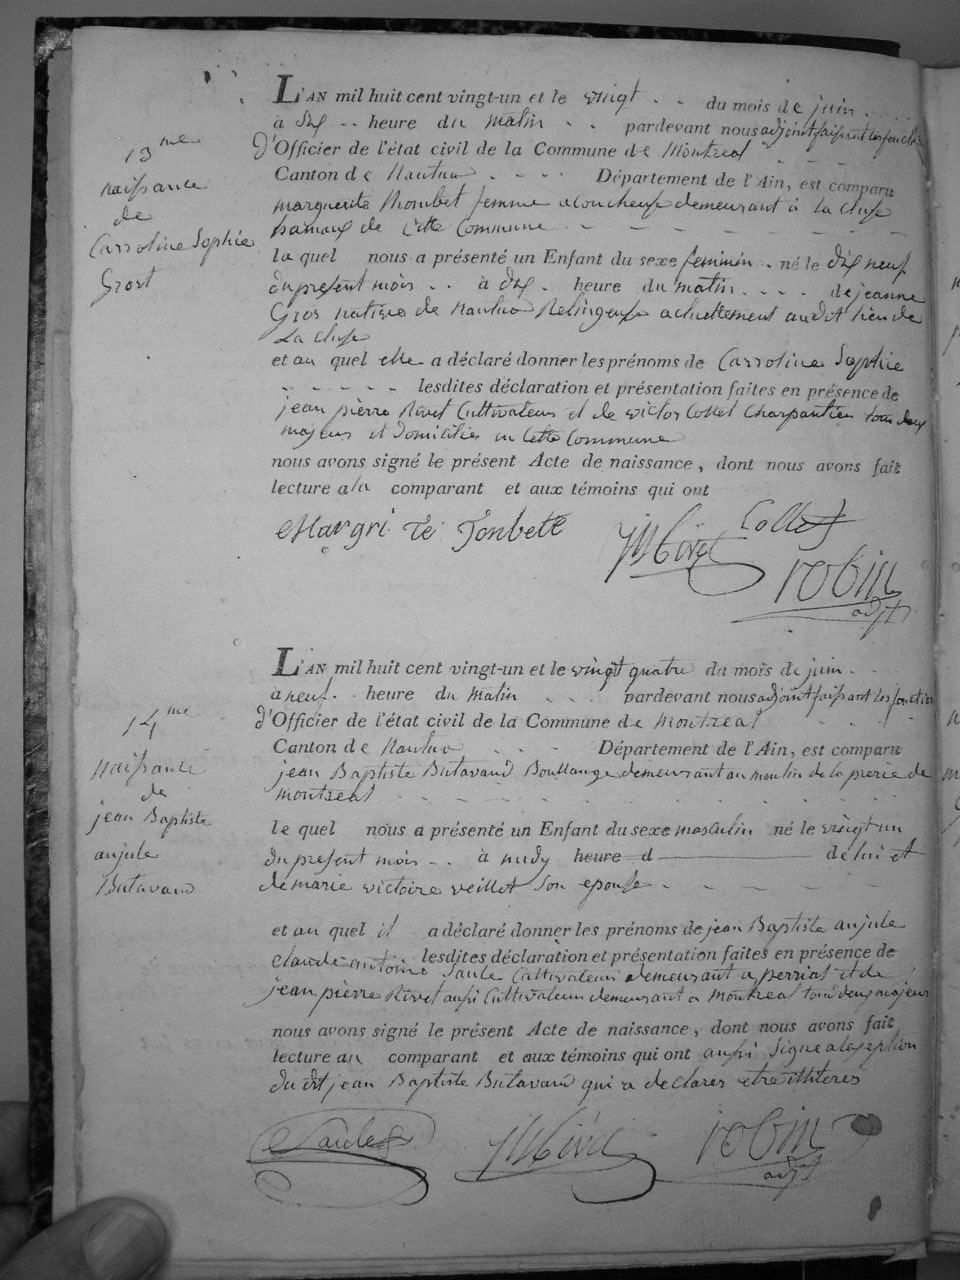 13me
naissance
de
Carroline Sophie
Grost
L'AN mil huit cent vingt-un et le vingt . . du mois de juin . .
à dix . . heure du matin . . pardevant nous adjoint faissant les fonction
d'Officier de l'état civil de la Commune de Montreal
Canton de Nantua . . . . Département de l'Ain, est comparu
marguerite Monbet femme acoucheuse demeurant à la cluse
hamaux de cette Commune
la quel nous a présenté un Enfant du sexe feminin . né le dix neuf
du present mois . . à dix . heure du matin . . . . de jeanne
Gros native de Nantua actuellement audit lieu de
La cluse
et au quel elle a déclaré donner les prénoms de Carroline Sophie
lesdites déclaration et présentation faites en présence de
jean pierre Rivet Cultivateur et de victor Collet Charpantier tous deux
majeurs et domiciliés en Cette Commune
nous avons signé le présent Acte de naissance, dont nous avons fait
lecture a la comparant et aux témoins qui ont
Margri te Jonbete
Collet
JP Rivet
robin
adjt
14me
Naissance
de
jean Baptiste
anjule
Butavand
L'AN mil huit cent vingt-un et le vingt quatre du mois de juin . .
à neuf . . heure du matin . . pardevant nous adjoint faissant les fonction
d'Officier de l'état civil de la Commune de Montreal
Canton de Nantua . . . Département de l'Ain, est comparu
jean Baptiste Butavand Boullange demeurant au moulin de la prerie de
montreal
le quel nous a présenté un Enfant du sexe masculin né le vingt un
du present mois . . à midy heure d de lui et
de marie victoire veillet son epouse
et au quel il a déclaré donner les prénoms de jean Baptiste anjule
lesdites déclaration et présentation faites en présence de
claude antoine Saule Cultivateur demeurant a perriat et de
jean pierre Rivet aussi Cultivateur demeurant a Montreal tous deux majeur
nous avons signé le présent Acte de naissance, dont nous avons fait
lecture au comparant et aux témoins qui ont aussi signé a lexeption
du dt jean Baptiste Butavand qui a declarer etre illiteres
Saule
JP Rivet
robin
adjt